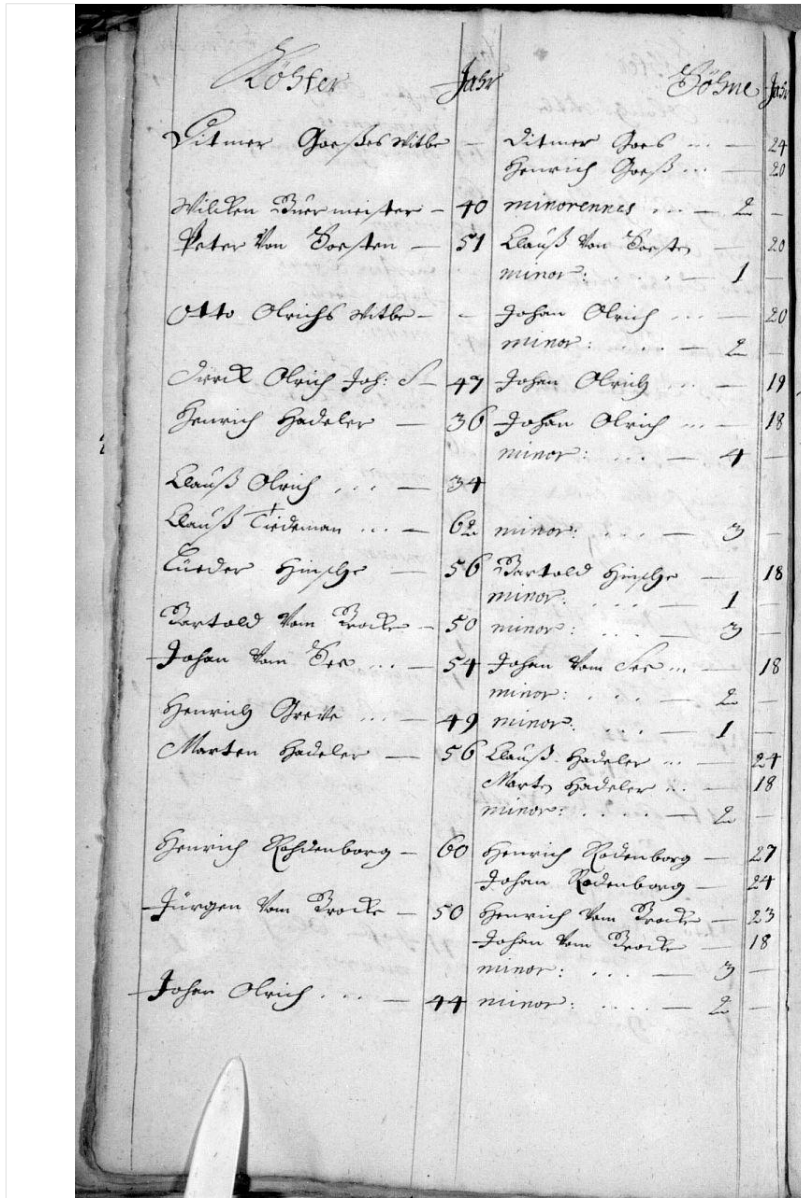 Köhter Jahr Söhne Jahr
Ditmer Goeßes Witbe - Ditmer Goes ... - 24
Henrich Goeß ... - 20
Wilcken Buermeister - 40 minorennes ... - 2 -
Peter Von Soesten - 51 Clauß Von Soesten - 20
minor: .... - 1 -
Otto Olrichs Witbe - - Johan Olrich ... - 20
minor: .... - 2 -
Dierck Olrich Joh: S - 47 Johan Olrich ... - 19
Henrich Hadeler - 36 Johan Olrich ... - 18
minor: .... - 4 -
Clauß Olrich .... - 34
Clauß Tiedeman ... - 62 minor: .... - 3 -
Lüeder Hinsche - 56 Bartold Hinsche - 18
minor: .... - 1 -
Bartold Vom Brocke - 50 minor: .... - 3 -
Johan Vom See ... - 54 Johan Vom See ... - 18
minor: .... - 2 -
Henrich Greve ... - 49 minor: .... - 1 -
Marten Hadeler - 56 Clauß Hadeler ... - 24
Marten Hadeler ... - 18
minor: .... - 2 -
Henrich Rohdenborg - 60 Henrich Rodenborg - 27
Johan Rodenborg - 24
Jürgen Vom Brocke - 50 Henrich Vom Brocke - 23
Johan Vom Brocke - 18
minor: .... - 3 -
Johan Olrich .... - 44 minor: .... - 2 -